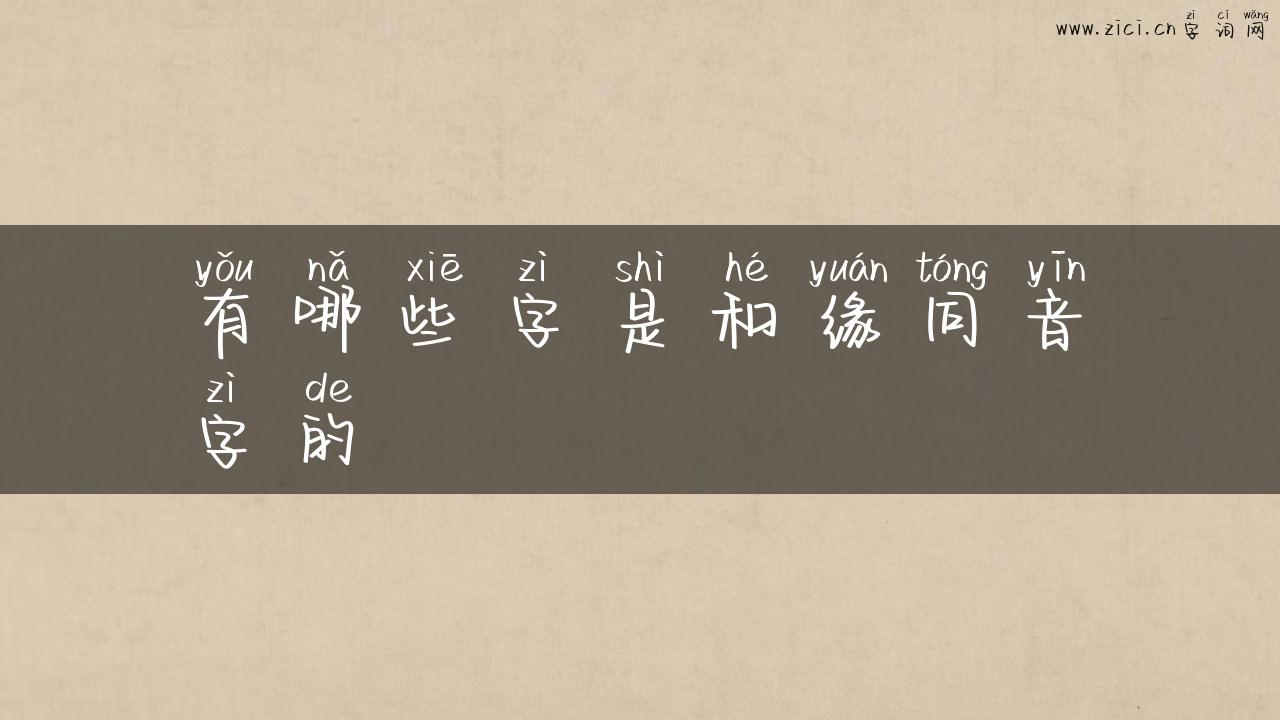 zì cí wǎng
www.zici.cn 字词网
yǒu nǎ xiē zì shì hé yuán tóng yīn
有哪些字是和缘同音
zì de
字的